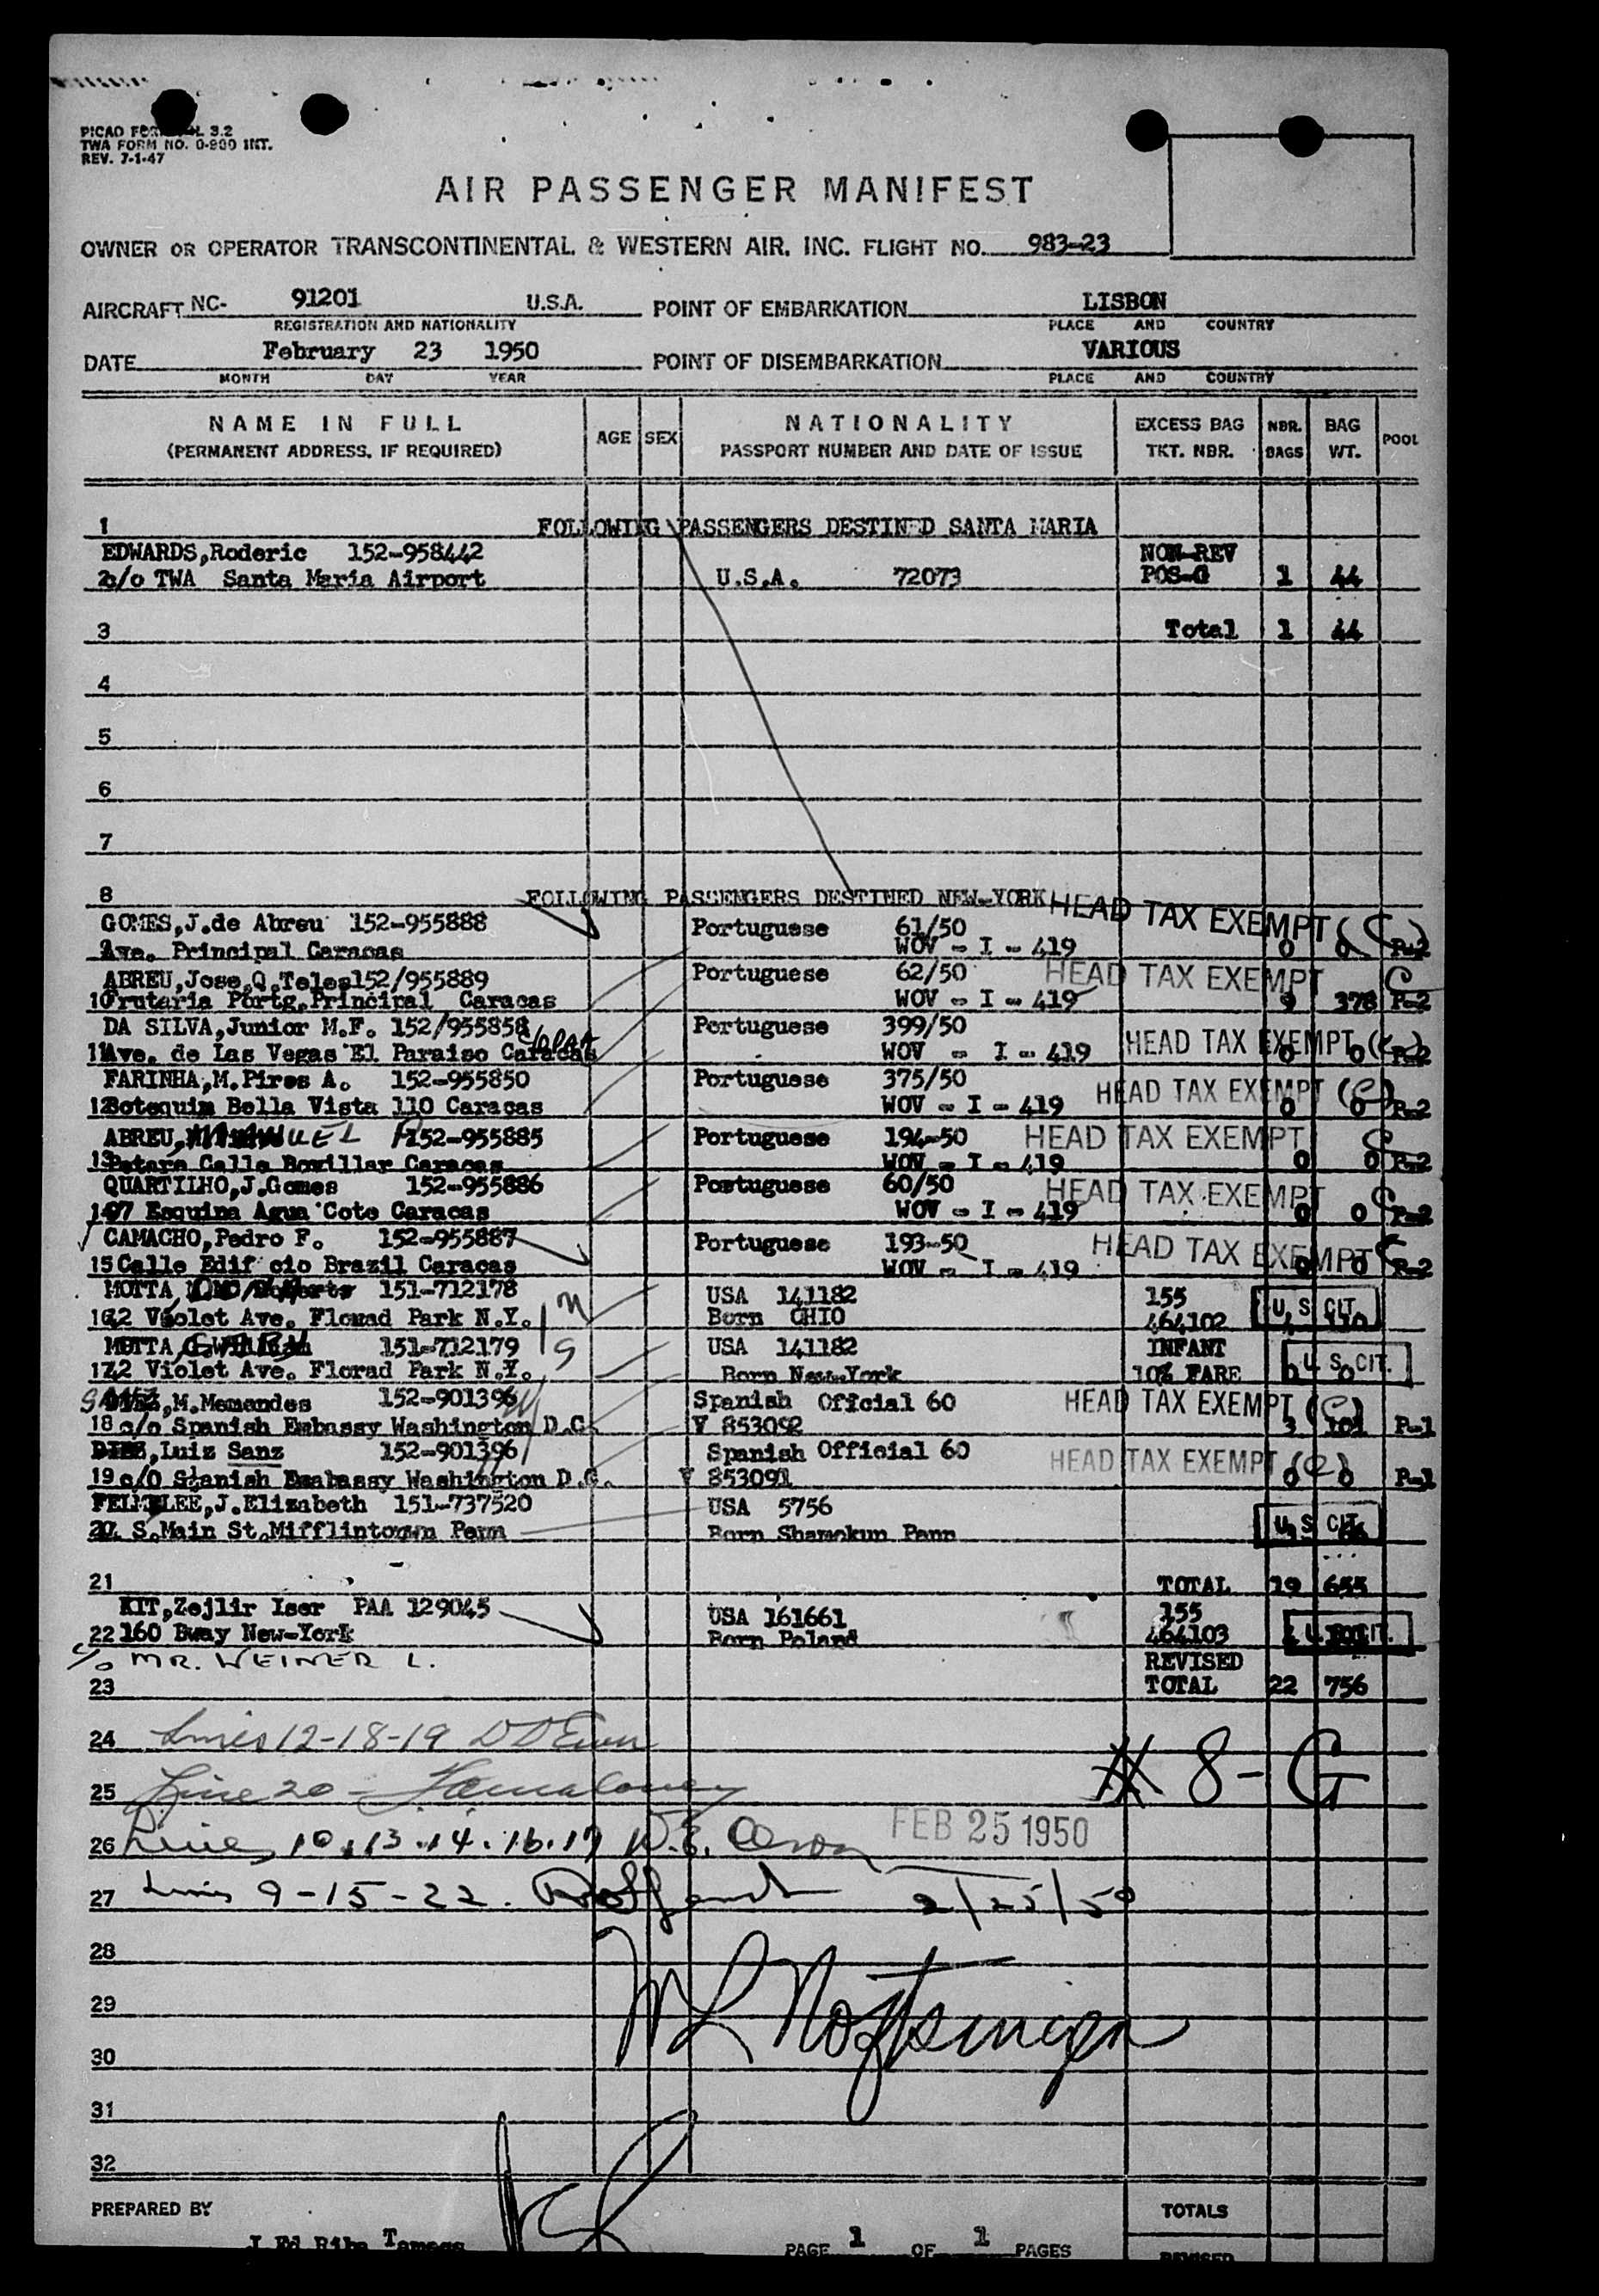 PICAO FORM 3.2
TWA FORM NO. 0-900 INT.
REV. 7-1-47
AIR PASSENGER MANIFEST
OWNER OR OPERATOR TRANSCONTINENTAL & WESTERN AIR, INC. FLIGHT NO. 983-23
AIRCRAFT NC- 91201 U.S.A. POINT OF EMBARKATION LISBON
REGISTRATION AND NATIONALITY PLACE AND COUNTRY
DATE February 23 1950 POINT OF DISEMBARKATION VARIOUS
MONTH DAY YEAR PLACE AND COUNTRY
NAME IN FULL AGE SEX NATIONALITY EXCESS BAG NBR. BAG POOL
(PERMANENT ADDRESS, IF REQUIRED) PASSPORT NUMBER AND DATE OF ISSUE TKT. NBR. BAGS WT.
1 FOLLOWING PASSENGERS DESTINED SANTA MARIA
EDWARDS,Roderic 152-958442 NON-REV
2 c/o TWA Santa Maria Airport U.S.A. 72073 POS-G 1 44
3 Total 1 44
4
5
6
7
8 FOLLOWING PASSENGERS DESTINED NEW-YORK
GOMES,J.de Abreu 152-955888 Portuguese 61/50 HEAD TAX EXEMPT
Ave. Principal Caracas WOV - I - 419 0 0 P-2
ABREU,Jose,Q.Teles152/955889 Portuguese 62/50 HEAD TAX EXEMPT
10 Frutaria Portg.Principal Caracas WOV - I - 419 9 378 P-2
DA SILVA,Junior M.F. 152/955858 Portuguese 399/50 HEAD TAX EXEMPT
11 Ave. de Las Vegas El Paraiso Caracas WOV - I - 419 0 0 P-2
FARINHA,M.Pires A. 152-955850 Portuguese 375/50 HEAD TAX EXEMPT
12 Botequim Bella Vista 110 Caracas WOV - I - 419 0 0 P-2
ABREU, MANUEL P. 152-955885 Portuguese 194-50 HEAD TAX EXEMPT
13 Petare Calle Bovillar Caracas WOV - I - 419 0 0 P-2
QUARTILHO,J.Gomes 152-955886 Postuguese 60/50 HEAD TAX EXEMPT
14 97 Esquina Agua Cote Caracas WOV - I - 419 0 0 P-2
CAMACHO,Pedro F. 152-955887 Portuguese 193-50 HEAD TAX EXEMPT
15 Calle Edif cio Brazil Caracas WOV - I - 419 0 0 P-2
MOTTA, 151-712178 USA 141182 155 U.S. CIT.
16 42 Violet Ave. Florad Park N.Y. Born OHIO 464102
MOTTA, 151-712179 USA 141182 INFANT U.S. CIT.
17 42 Violet Ave. Florad Park N.Y. Born New-York 10% FARE 0 0
M.Menandes 152-901396 Spanish Official 60 HEAD TAX EXEMPT
18 c/o Spanish Embassy Washington D.C. V 853092 3 101 P-1
Luiz Sanz 152-901396 Spanish Official 60 HEAD TAX EXEMPT
19 c/O Spanish Embassy Washington D.C. V 853091 0 0 P-1
FELMLEE,J.Elizabeth 151-737520 USA 5756 U.S. CIT.
20 S.Main St.Mifflintown Penn Born Shamokun Penn
21 TOTAL 19 655
KIT,Zejlir Iser PAA 129045 USA 161661 155
22 160 Bway New-York Born Poland 464103 U.S. CIT.
c/o MR. WEINER L. REVISED
23 TOTAL 22 756
24 Lines 12-18-19
25 Line 20 - # 8-G
26 Lines 10.13.14.16.17 W.E. FEB 25 1950
27 Lines 9-15-22. 2/25/50
28
29
30
31
32
PREPARED BY TOTALS
PAGE 1 OF 1 PAGES REVISED